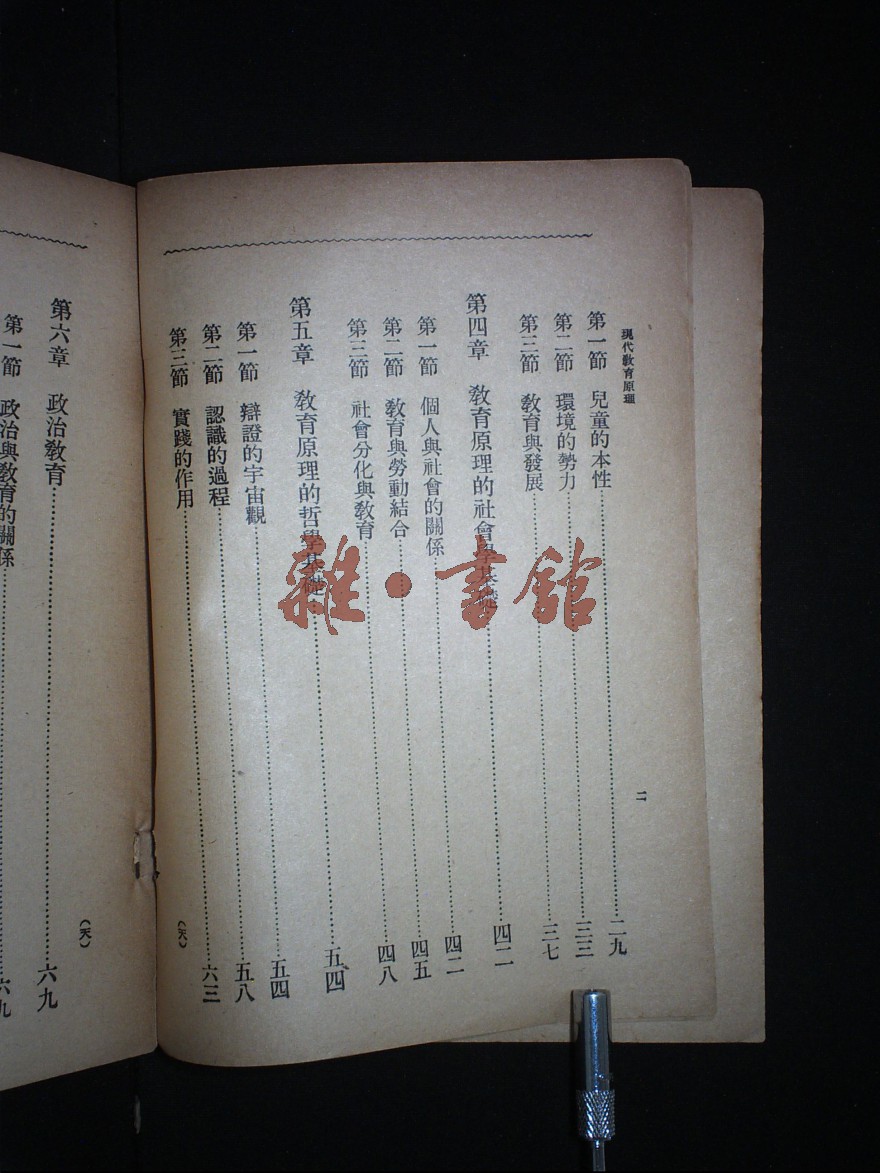 現代教育原理
二
第一節 兒童的本性 二九
第二節 環境的勢力 三三
第三節 教育與發展 三七
第四章 教育原理的社會學基礎 四二
第一節 個人與社會的關係 四二
第二節 教育與勞動結合 四五
第三節 社會分化與教育 四八
第五章 教育原理的哲學基礎 五四
第一節 辯證的宇宙觀 五四
第二節 認識的過程 五八
第三節 實踐的作用 六三
(天)
(天)
第六章 政治教育 六九
第一節 政治與教育的關係 六九
雜·書館